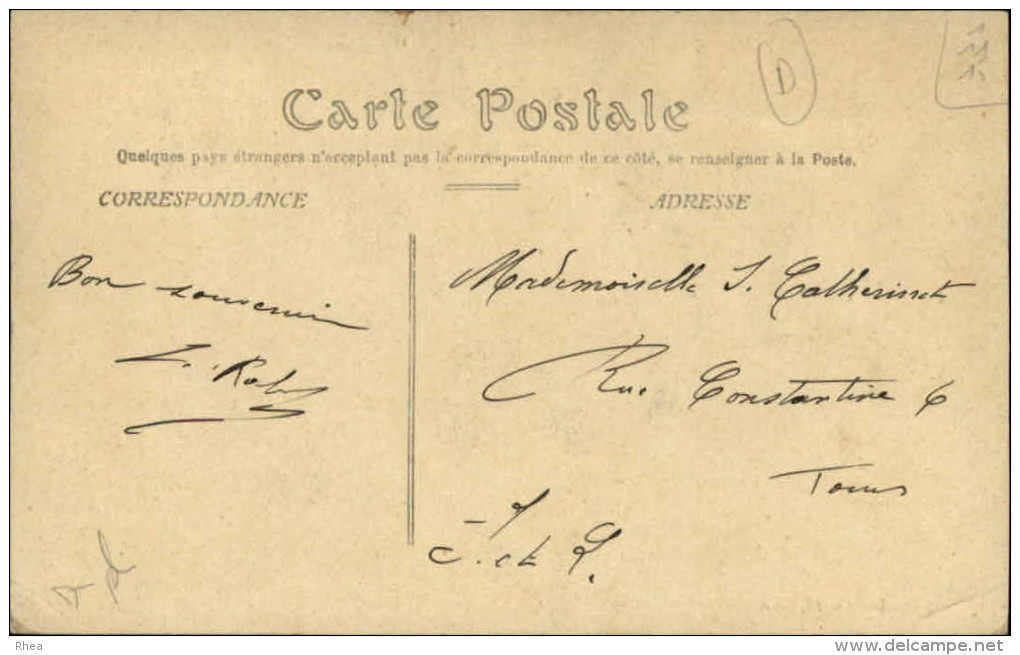 D
Carte Postale
Quelques pays étrangers n'acceptant pas la correspondance de ce côté, se renseigner à la Poste.
CORRESPONDANCE
ADRESSE
Bon souvenir
Mademoiselle S. Catherinet
Rue Constantine 6
Tours
I. et L.
Rhea
www.delcampe.net